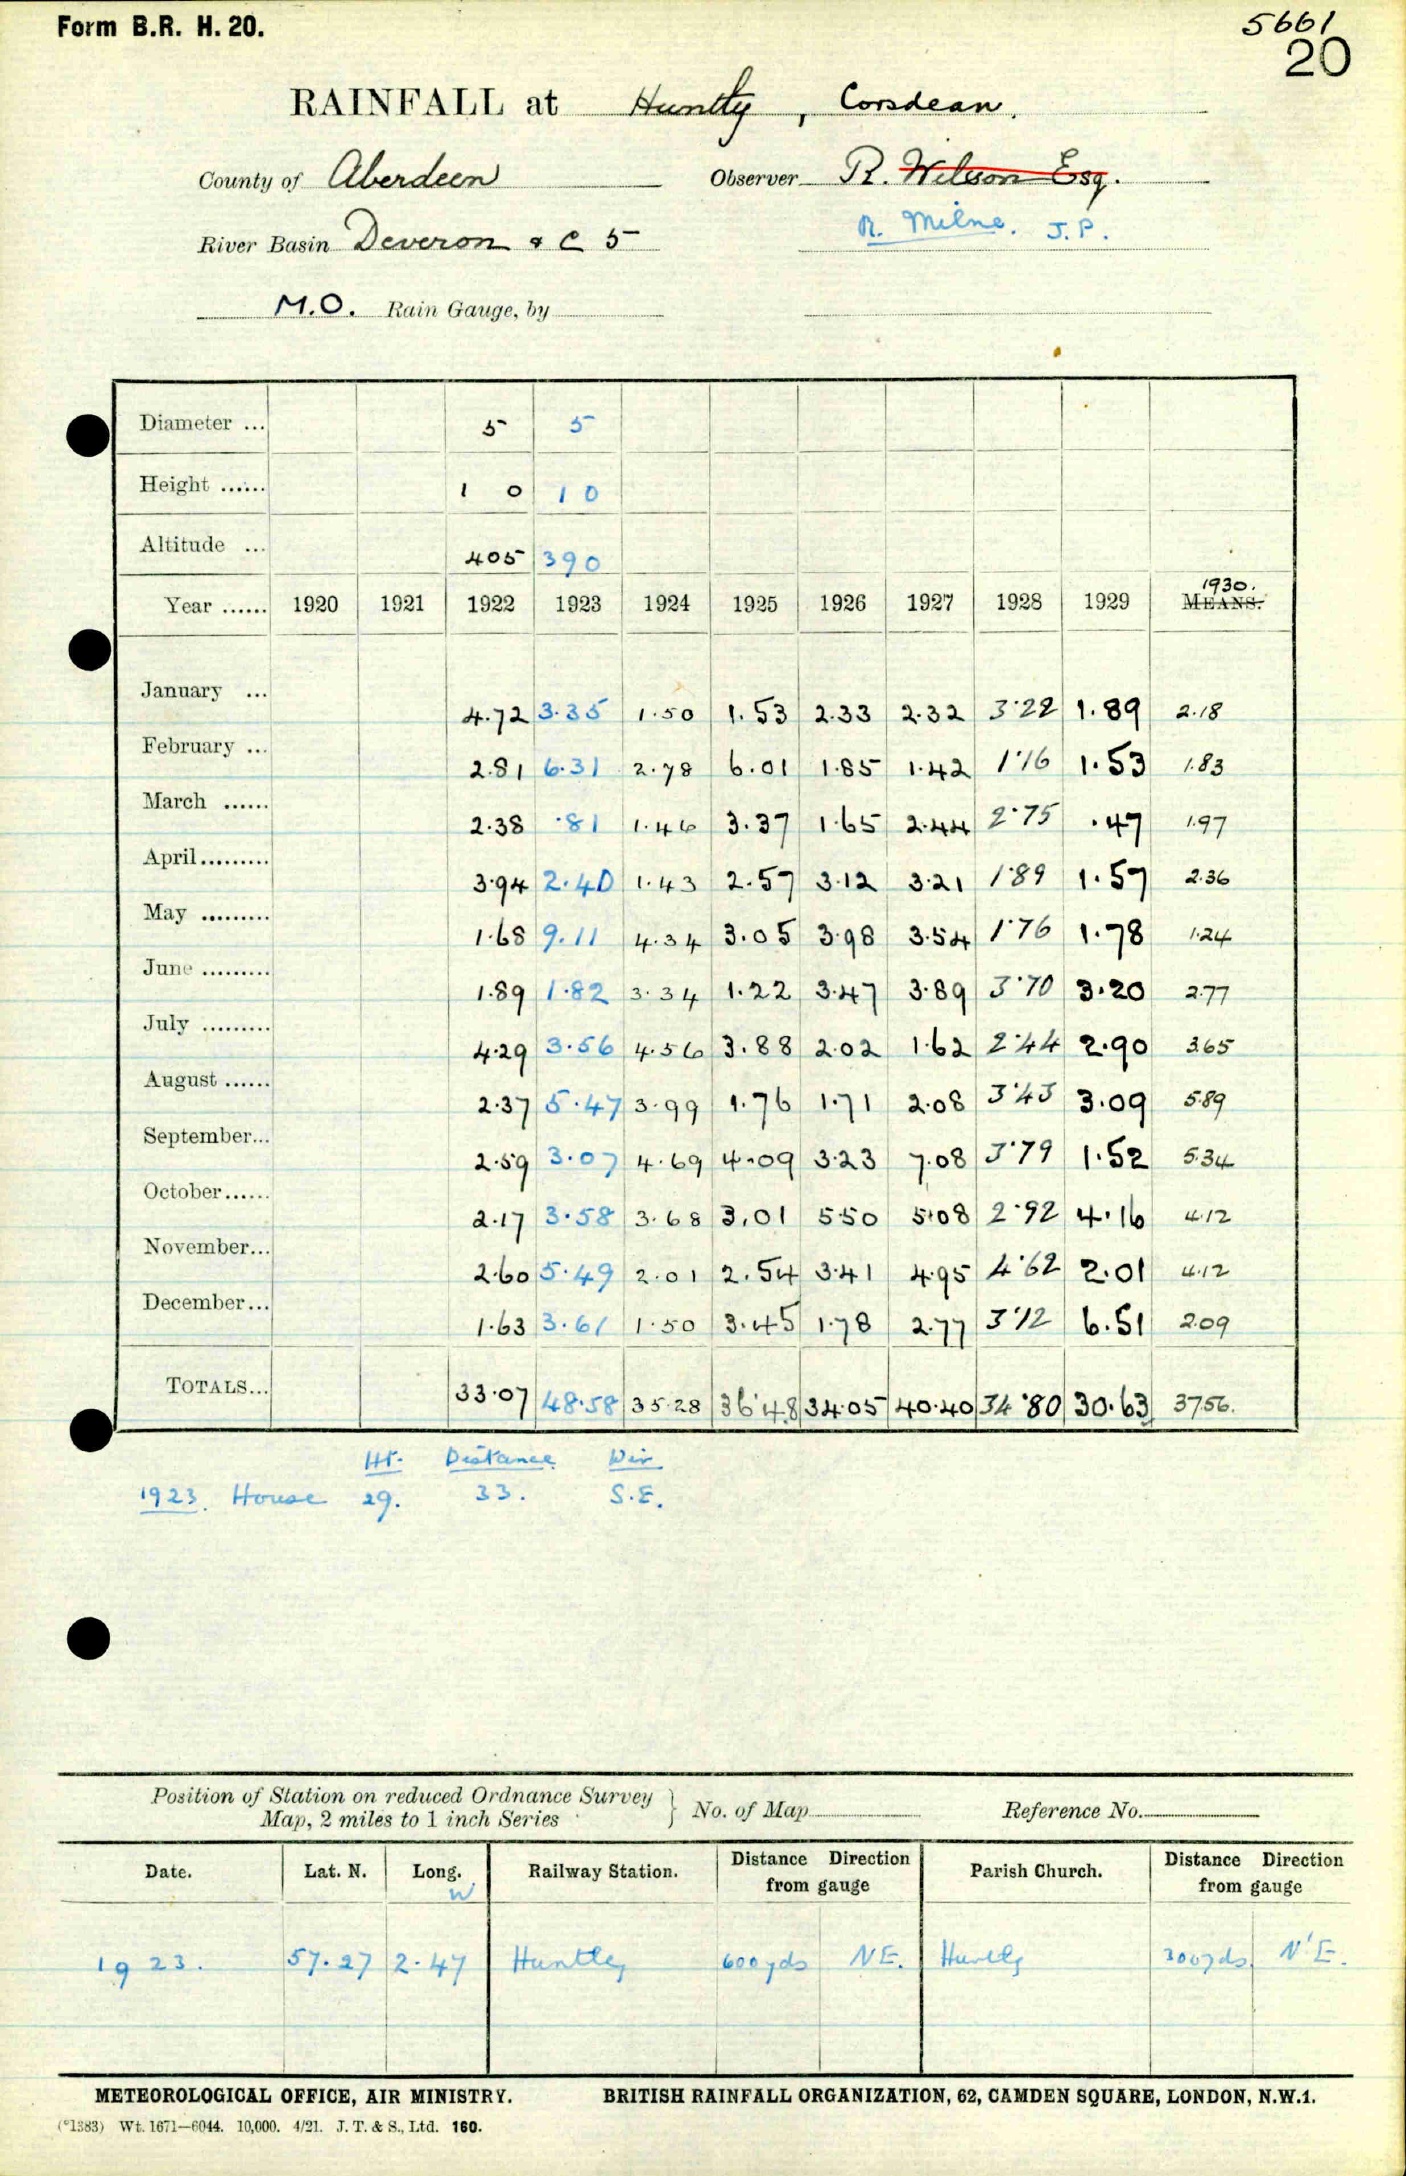 Form B.R. H. 20.
5661
20
RAINFALL at Huntly, Corsdean.
County of Aberdeen Observer R. Wilson Esq.
R. Milne. J.P.
River Basin Deveron & C 5
M.O. Rain Gauge, by
Diameter ... 5 5
Height ...... 1 0 1 0
Altitude ... 405 390
1930.
Year ...... 1920 1921 1922 1923 1924 1925 1926 1927 1928 1929 MEANS.
January ... 4.72 3.35 1.50 1.53 2.33 2.32 3.22 1.89 2.18
February ... 2.81 6.31 2.78 6.01 1.85 1.42 1.16 1.53 1.83
March ...... 2.38 .81 1.46 3.37 1.65 2.44 2.75 .47 1.97
April......... 3.94 2.40 1.43 2.57 3.12 3.21 1.89 1.57 2.36
May ......... 1.68 9.11 4.34 3.05 3.98 3.54 1.76 1.78 1.24
June ......... 1.89 1.82 3.34 1.22 3.47 3.89 3.70 3.20 2.77
July ......... 4.29 3.56 4.56 3.88 2.02 1.62 2.44 2.90 3.65
August ...... 2.37 5.47 3.99 1.76 1.71 2.08 3.43 3.09 5.89
September... 2.59 3.07 4.69 4.09 3.23 7.08 3.79 1.52 5.34
October...... 2.17 3.58 3.68 3.01 5.50 5.08 2.92 4.16 4.12
November... 2.60 5.49 2.01 2.54 3.41 4.95 4.62 2.01 4.12
December... 1.63 3.61 1.50 3.45 1.78 2.77 3.12 6.51 2.09
TOTALS... 33.07 48.58 35.28 36.48 34.05 40.40 34.80 30.63 37.56.
Ht. Distance Dir
1923. House 29. 33. S.E.
Position of Station on reduced Ordnance Survey
Map, 2 miles to 1 inch Series } No. of Map Reference No.
Date. Lat. N. Long. W Railway Station. Distance Direction from gauge Parish Church. Distance Direction from gauge
1923. 57.27 2.47 Huntley 600yds NE. Huntly 300yds N'E.
METEOROLOGICAL OFFICE, AIR MINISTRY. BRITISH RAINFALL ORGANIZATION, 62, CAMDEN SQUARE, LONDON, N.W.1.
(*1383) Wt. 1671—6044. 10,000. 4/21. J. T. & S., Ltd. 160.